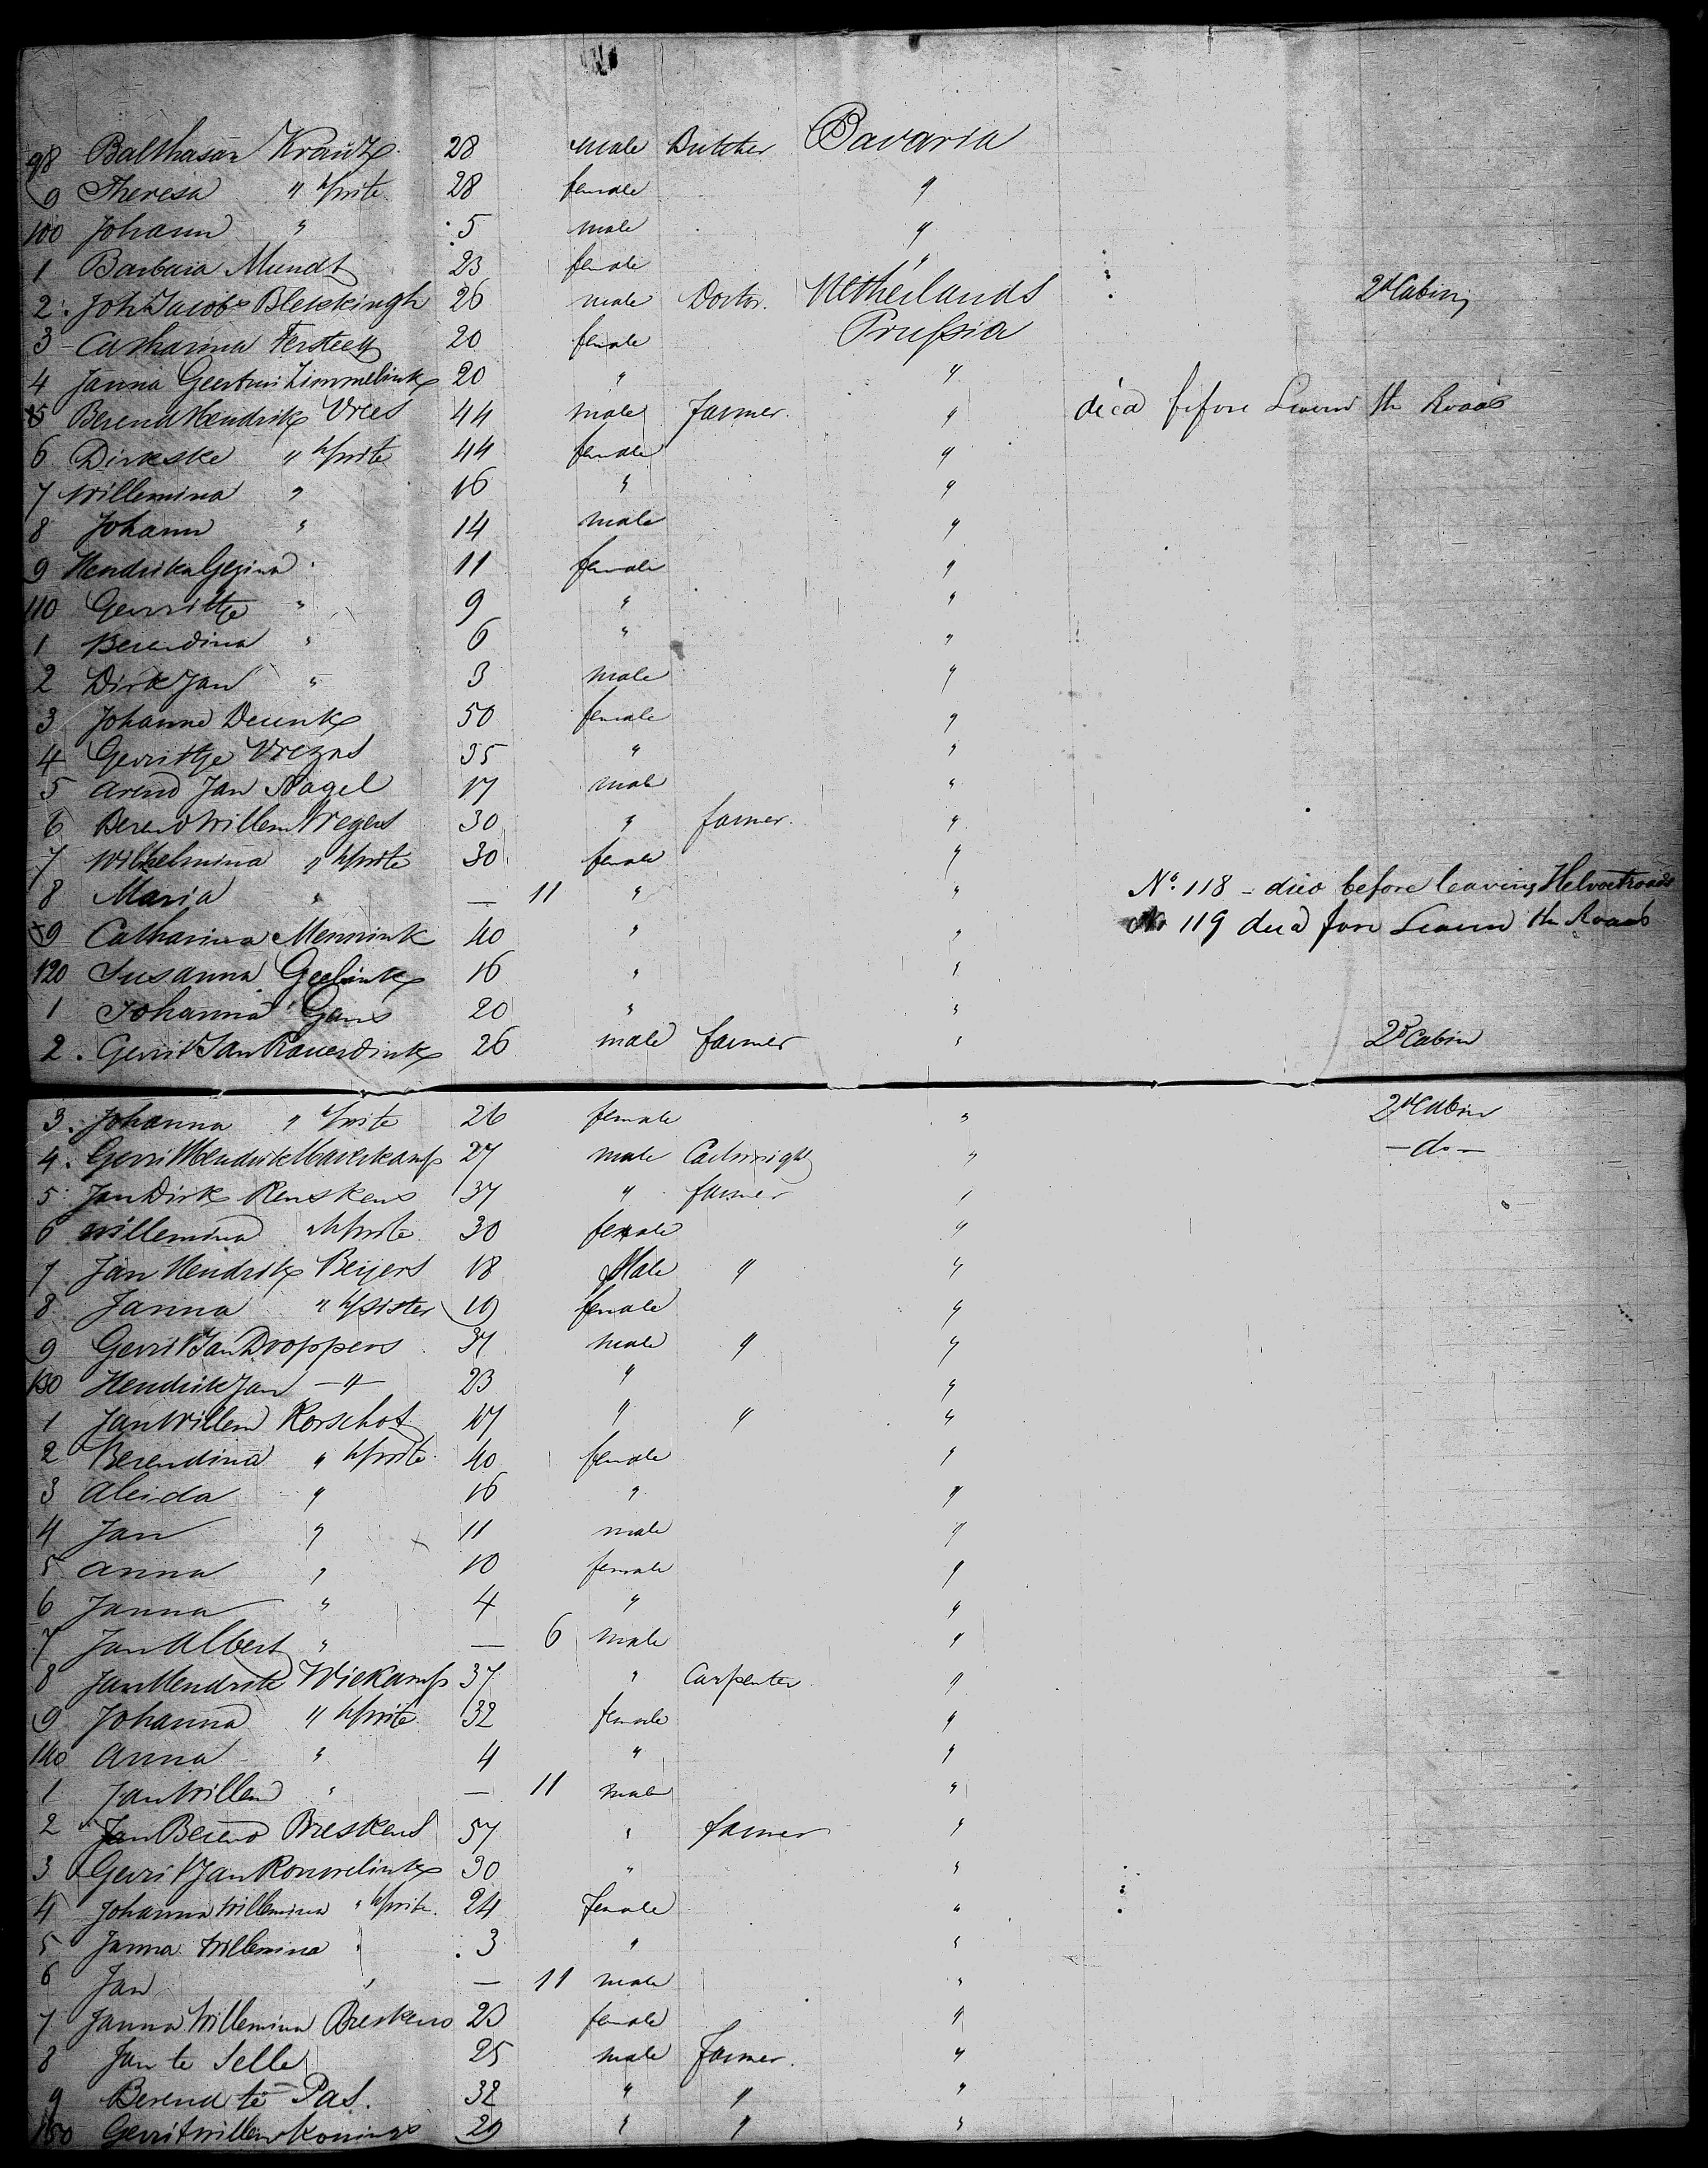 98 Balthasar Krautz 28 male Butcher Bavaria
9 Theresa " h/wife 28 female "
100 Johann " 5 male "
1 Barbara Mundt 23 female "
2. Joh Jacobs 26 male Doctor. Netherlands 2d Cabin
3 Catharina Fersteeg 20 female Prussia
4 Janna Geertrui Limmelink 20 " "
5 Berend Hendrik Vrees 44 male Farmer. " died before the Roads
6 Dirkske " h/wife 44 female "
7 Willemina " 16 " "
8 Johann " 14 male "
9 Hendrika Gezina " 11 female "
110 Gerritje " 9 " "
1 Berendina " 6 " "
2 Dirk Jan " 3 male "
3 Johanna Deunk 50 female "
4 Gerritje 35 " "
5 Arend Jan Nagel 17 male "
6 Berend Willem Wregers 30 " farmer. "
7 Wilhelmina " h/wife 30 female "
8 Maria " — 11 " " No. 118 - died before leaving Helvoetroads
9 Catharina Mennink 40 " " No 119 died the Roads
120 Susanna Geelink 16 " "
1 Johanna Gans 20 " "
2. Gerrit Jan Rauerdink 26 male farmer " 2d Cabin
3. Johanna " h/wife 26 female " 2d Cabin
4. Gerrit Hendrik Maverkamp 27 male Cartwright " - do -
5. Jan Dirk Renskens 37 " farmer "
6 Willemina " h/wife 30 female "
7 Jan Hendrik Beijers 18 Male " "
8 Janna " h/sister 19 female "
9 Gerrit Jan Droppers 37 male " "
130 Hendrik Jan — " — 23 " "
1 Jan Willem Korschot 47 " " "
2 Berendina " h/wife 40 female "
3 Aleida " 16 " "
4 Jan " 11 male "
5 Anna " 10 female "
6 Janna " 4 " "
7 Jan Albert " — 6 male "
8 Jan Hendrik Wiekamp 37 " Carpenter "
9 Johanna " h/wife 32 female "
140 Anna " 4 " "
1 Jan Willem " — 11 male "
2 Jan Berend Breskens 57 " farmer "
3 Gerrit Jan Romvelink 30 " "
4 Johanna Willemina " h/wife. 24 female "
5 Janna Willemina " 3 " "
6 Jan " — 11 male "
7 Janna Willemina Breskens 23 female "
8 Jan te Selle 25 male farmer. "
9 Berend te Pas. 32 " " "
150 Gerrit Willem Konings 29 " " "